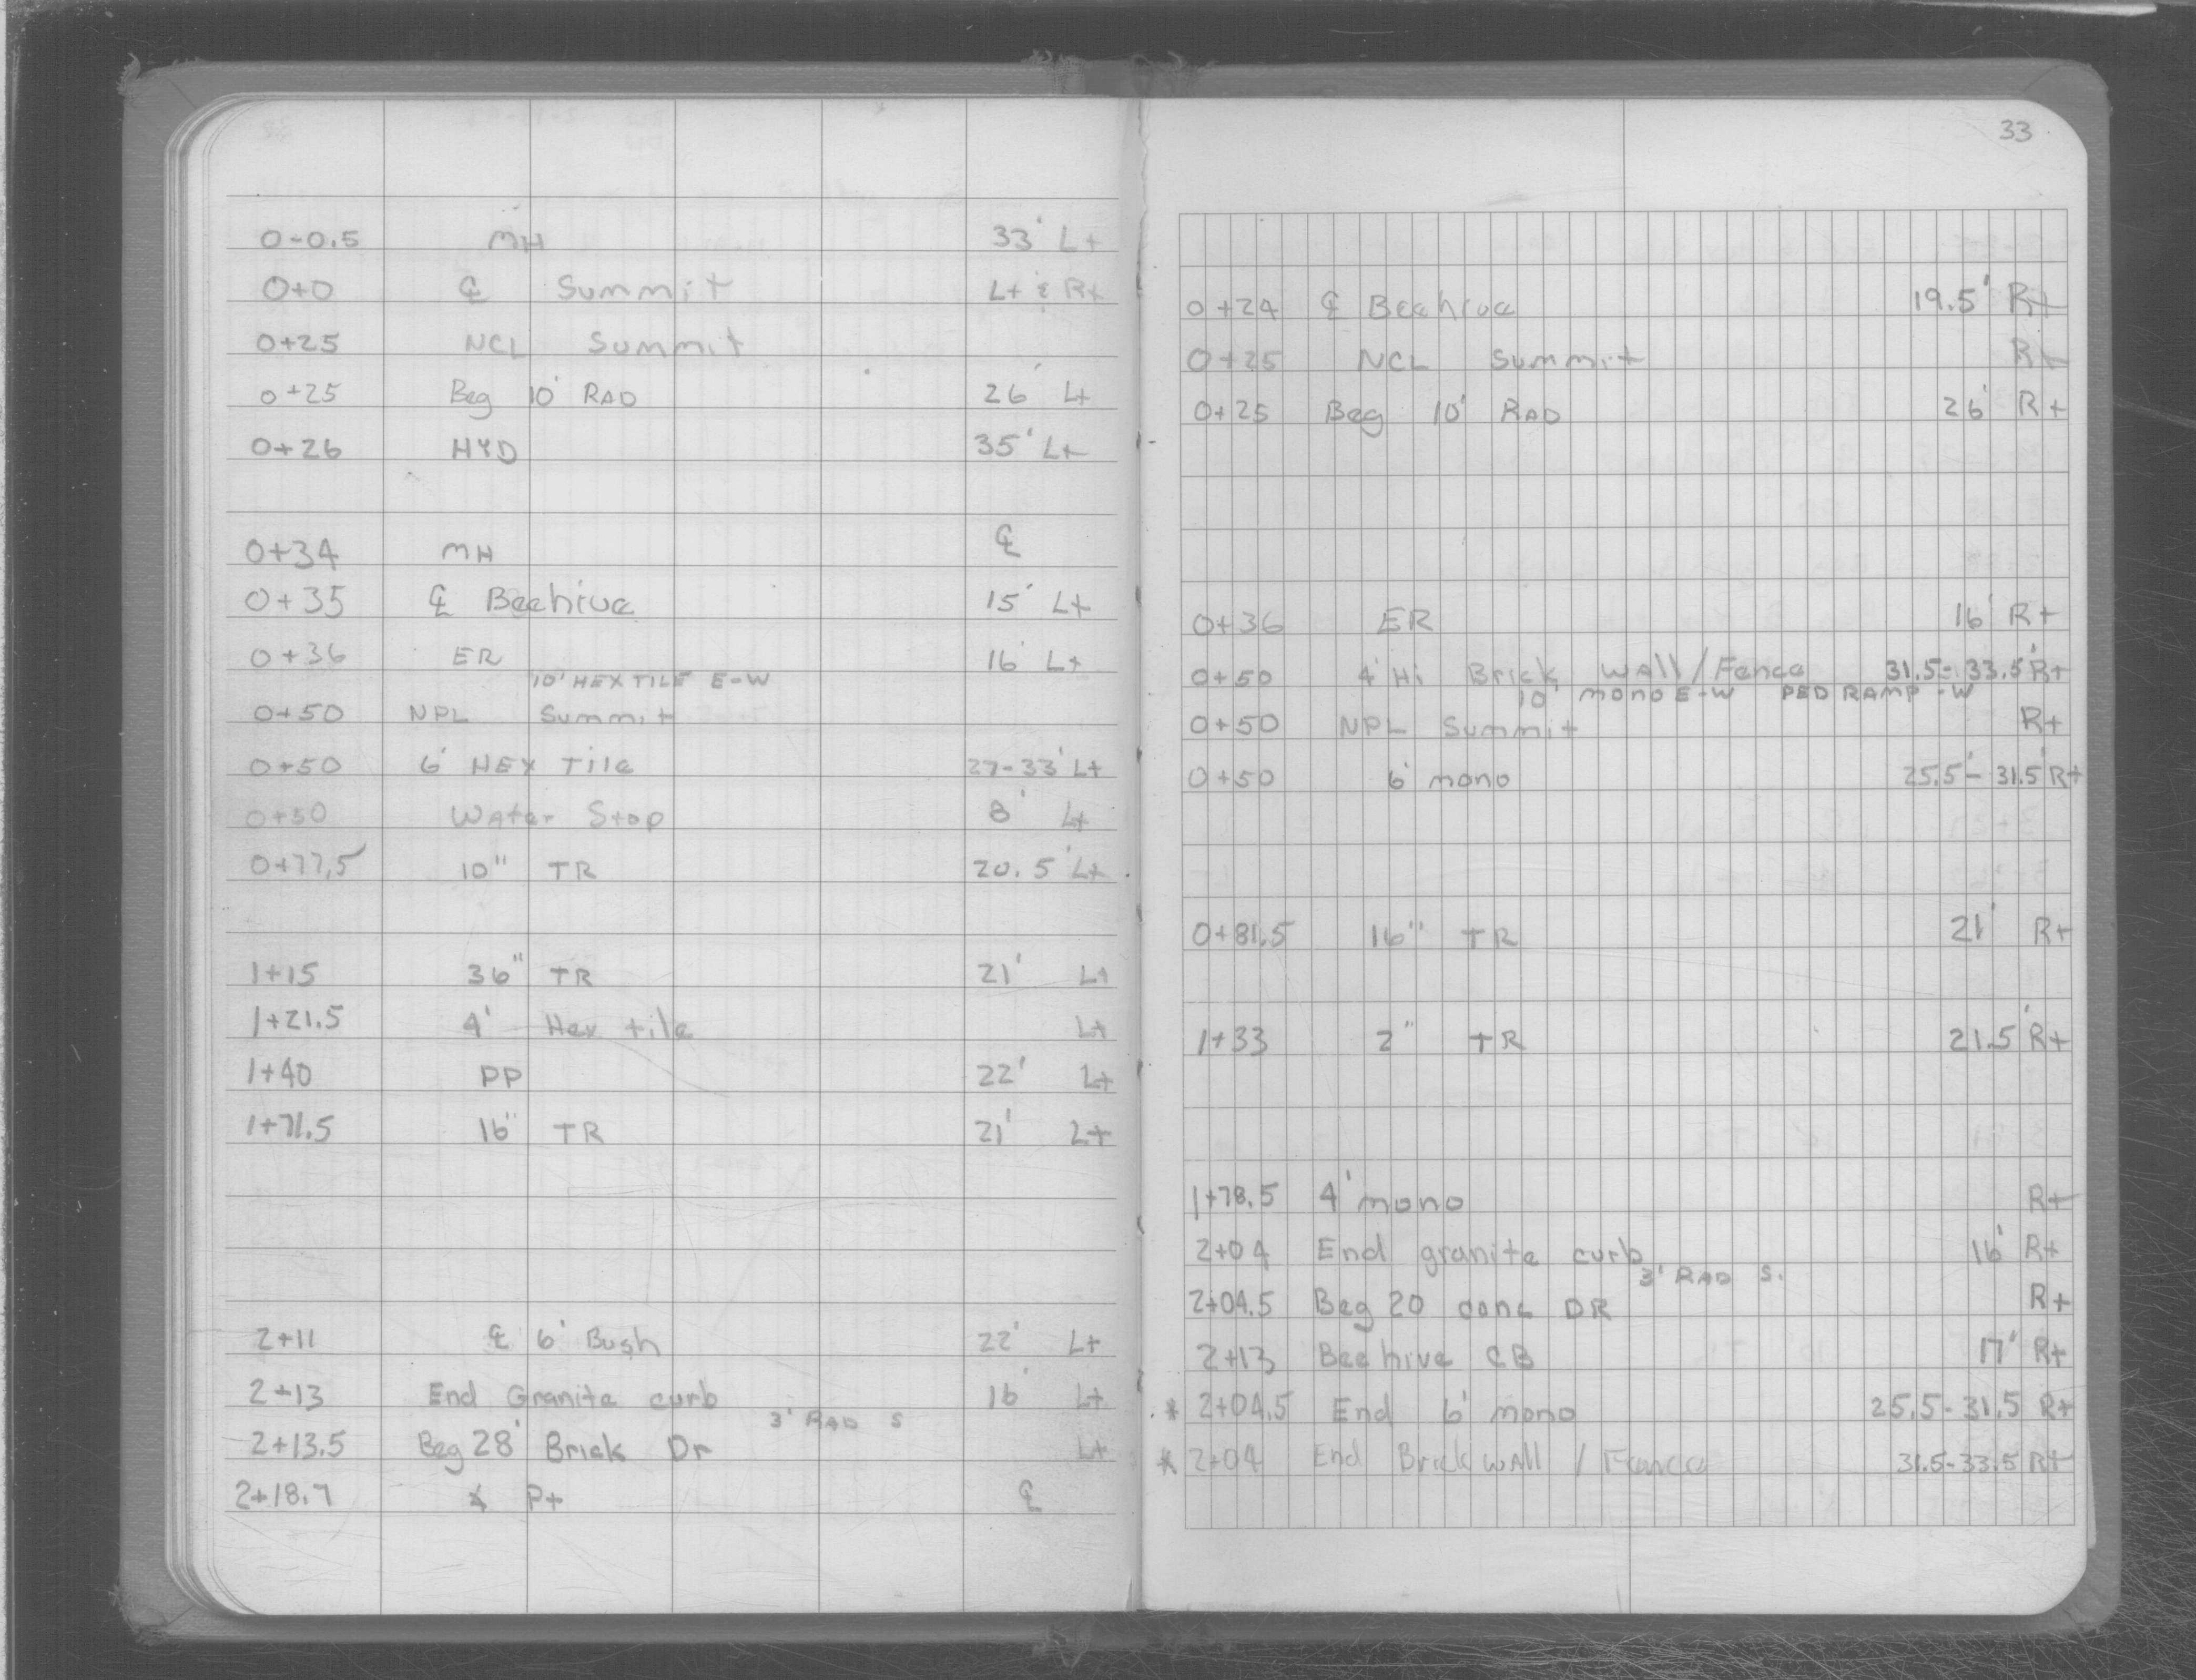 0-0.5 MH 33' Lt
0+0 ℄ Summit Lt & Rt
0+25 NCL Summit
0+25 Beg 10' RAD 26' Lt
0+26 HYD 35' Lt
0+34 MH ℄
0+35 ℄ Beehive 15' Lt
0+36 ER 16' Lt
10' HEX TILE E-W
0+50 NPL Summit
0+50 6' HEX Tile 27-33' Lt
0+50 Water Stop 8' Lt
0+77.5 10" TR 20.5' Lt
1+15 36" TR 21' Lt
1+21.5 4' Hex tile Lt
1+40 PP 22' Lt
1+71.5 16" TR 21' Lt
2+11 ℄ 6' Bush 22' Lt
2+13 End Granite curb 16' Lt
3' RAD S
2+13.5 Beg 28' Brick Dr Lt
2+18.7 ∡ Pt ℄
33
0+24 ℄ Beehive 19.5' Rt
0+25 NCL Summit Rt
0+25 Beg 10' RAD 26' Rt
0+36 ER 16' Rt
0+50 4' Hi Brick Wall/Fence 31.5-33.5' Rt
10' mono E-W PED RAMP -W
0+50 NPL Summit Rt
0+50 6' mono 25.5'-31.5' Rt
0+81.5 16" TR 21' Rt
1+33 2" TR 21.5' Rt
1+78.5 4' mono Rt
2+04 End granite curb 16' Rt
3' RAD S.
2+04.5 Beg 20 conc DR Rt
2+13 Beehive CB 17' Rt
* 2+04.5 End 6' mono 25.5-31.5 Rt
* 2+04 End Brick wAll / Fence 31.5-33.5 Rt